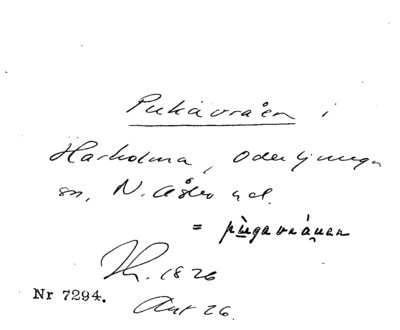 Pukavråen i
Harholma, Oderljunga
sn, N. Åsbo hd.
= pùgavráuen
1826
Nr 7294.
Ant 26.